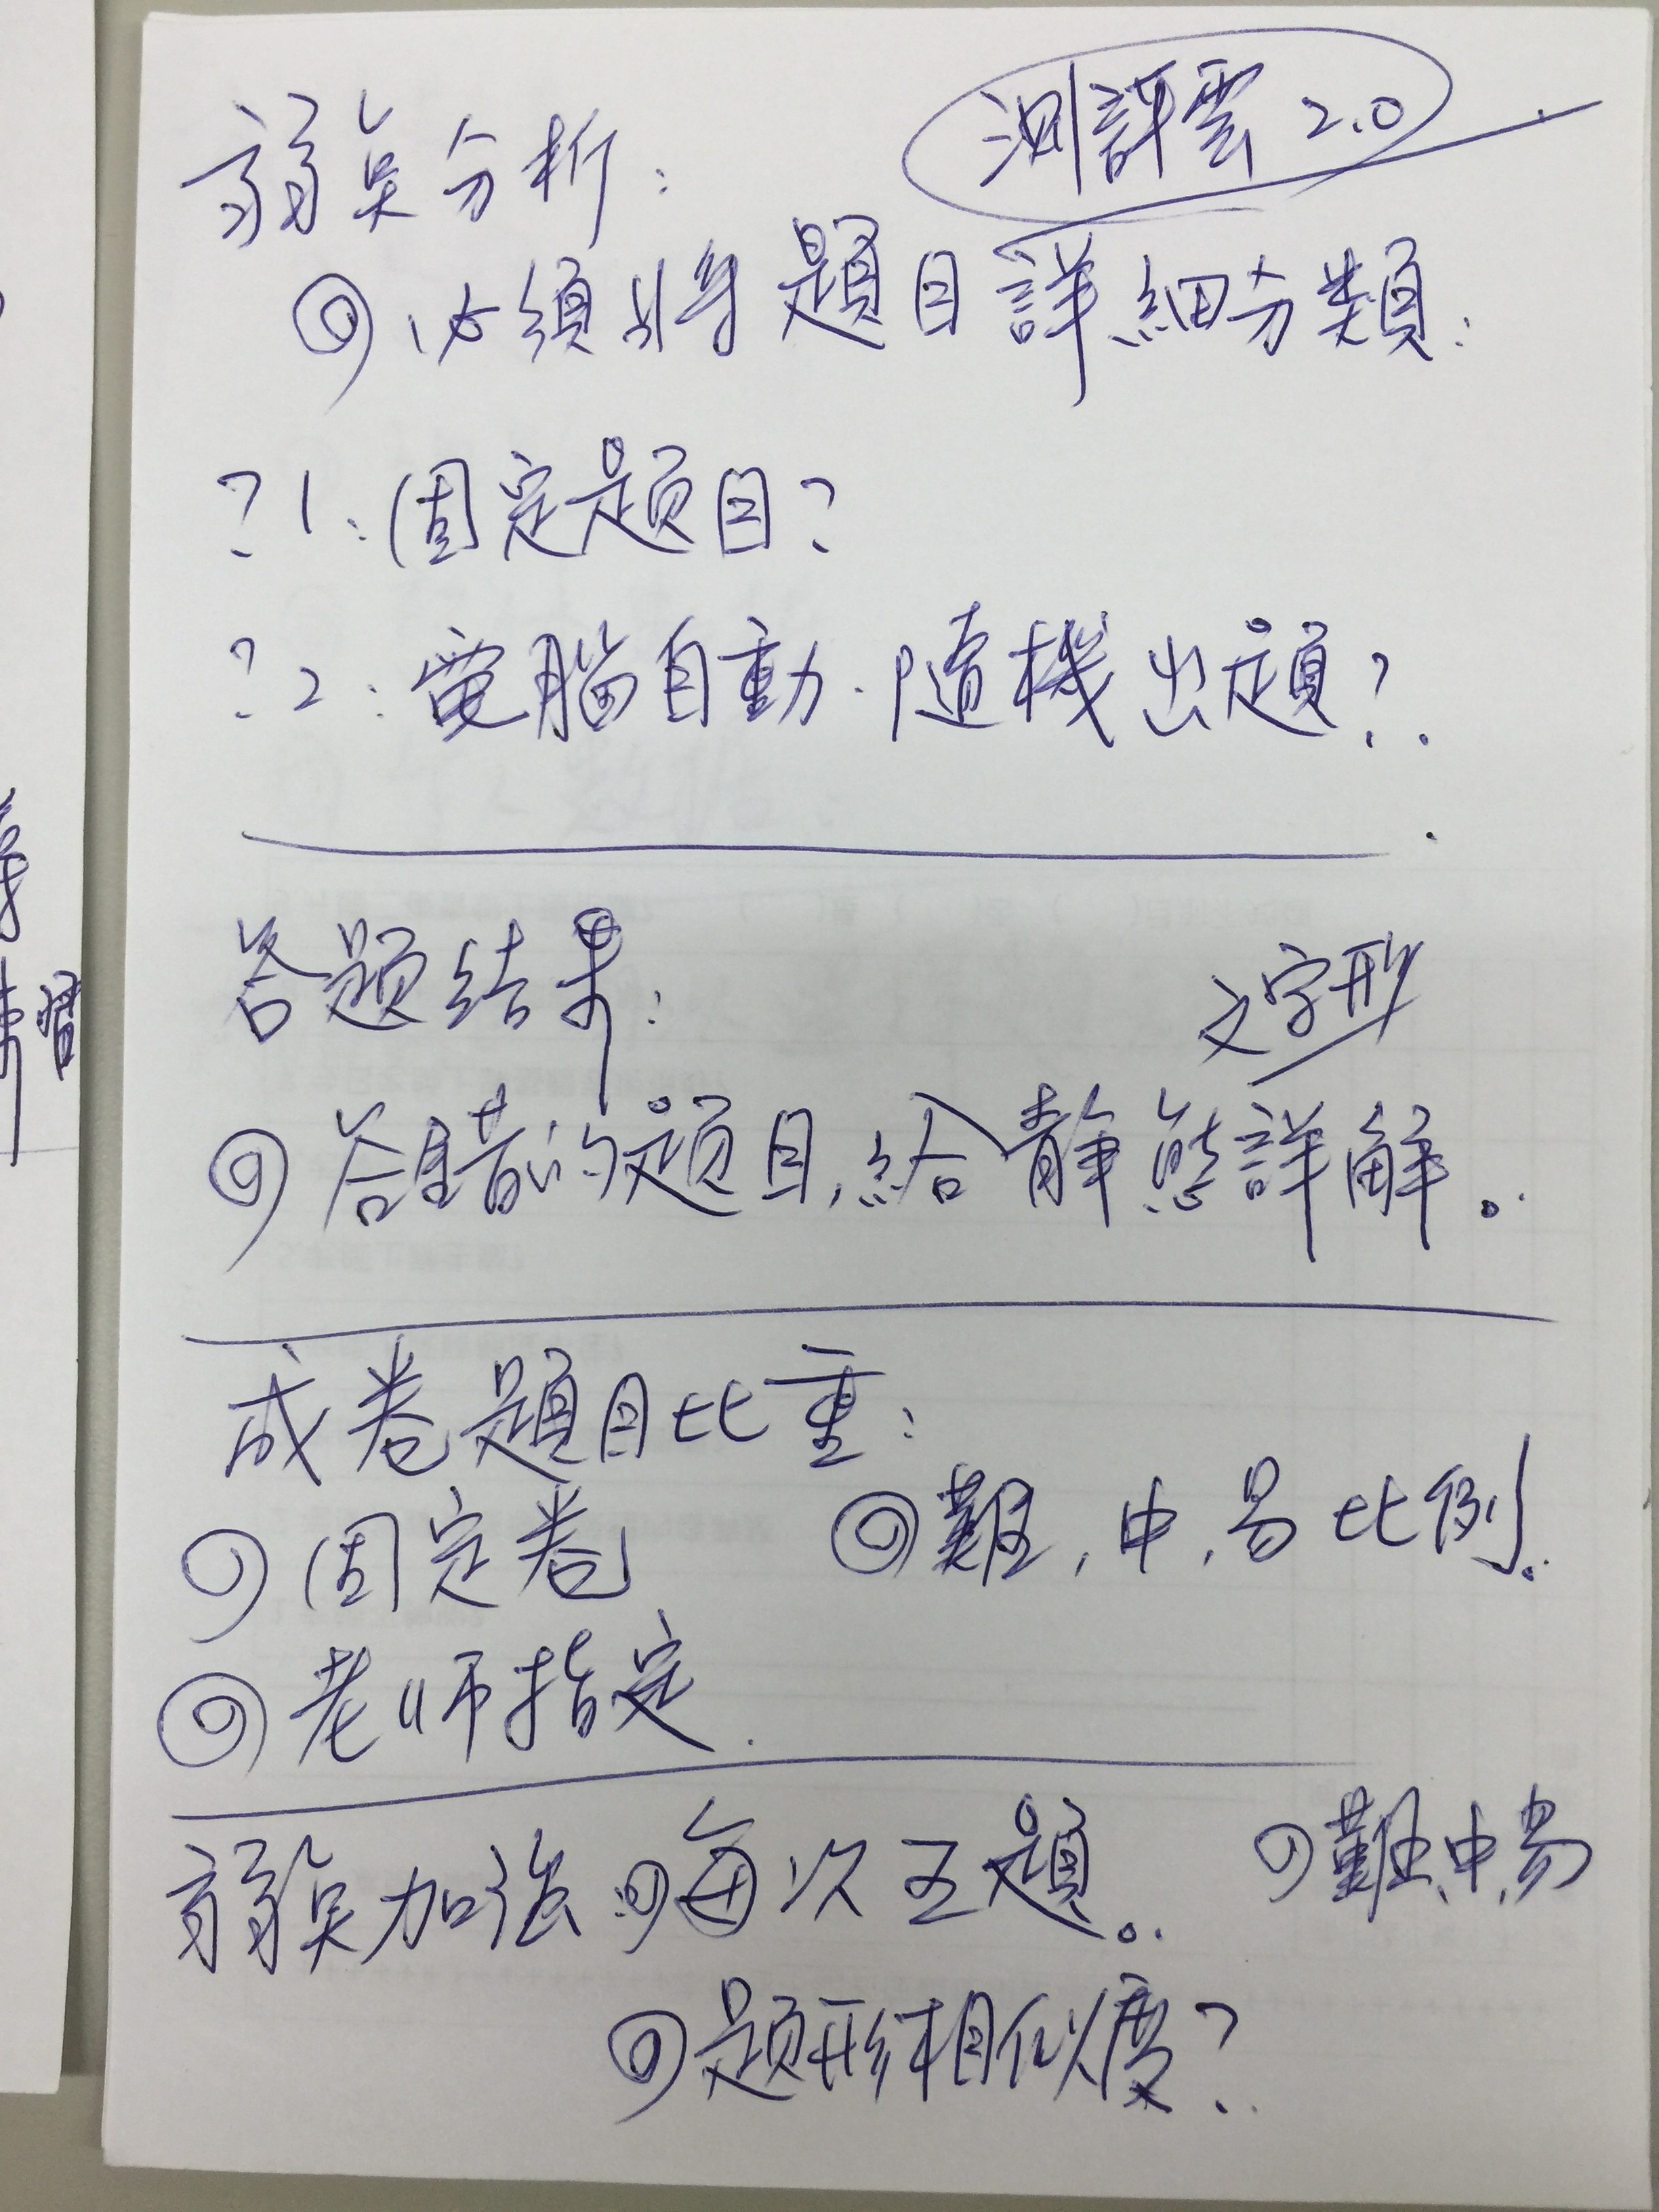 測評雲 2.0
弱點分析：
◎必須將題目詳細分類：
？1：固定題目？
？2：電腦自動．隨機出題？
答題結果：
文字形
◎答錯的題目，給靜態詳解。
成卷題目比重：
◎固定卷
◎難，中，易比例。
◎老師指定．
弱點加強：◎每次五題。
◎難、中、易
◎題形相似度？
習